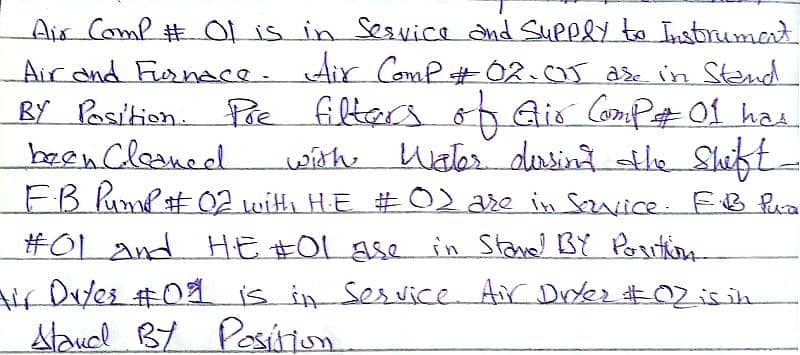 Air Comp # 01 is in Service and Supply to Instrument
Air and Furnace. Air Comp # 02.05 are in Stand
BY Position. Pre filters of Air Comp # 01 has
been Cleaned with Water during the Shift
F.B Pump # 02 with H.E # 02 are in Service. F.B Pum
#01 and H.E #01 are in Stand BY Position
Air Dryer #01 is in Service. Air Dryer #02 is in
Stand BY Position